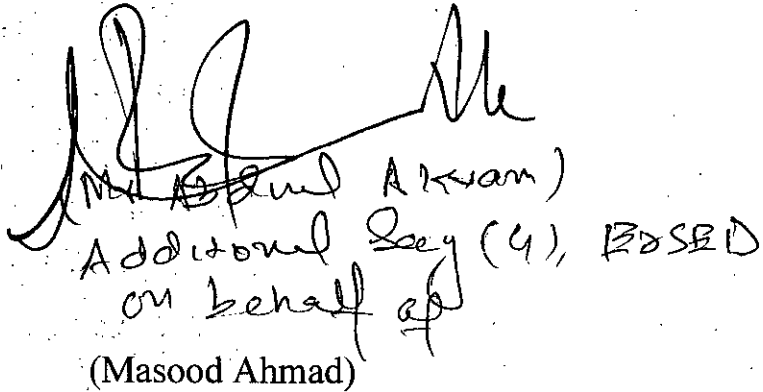 Abdul Akram)
Additional Secy (G), E&SED
on behalf of
(Masood Ahmad)